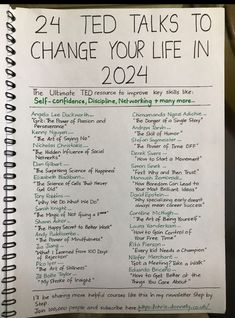 24 TED TALKS TO
CHANGE YOUR LIFE IN
2024
The Ultimate TED resource to improve key skills like:
Self-confidence, Discipline, Networking + many more...
Angela Lee Duckworth...
"Grit: The Power of Passion and
Perseverance"
Kenny Nguyen...
"The Art of Saying No"
Nicholas Christakis...
"The Hidden Influence of Social
Networks"
Dan Gilbert...
"The Surprising Science of Happiness"
Elizabeth Blackburn...
"The Science of Cells That Never
Get Old"
Tony Robbins...
"Why We Do What We Do"
Sarah Knight...
"The Magic of Not Giving a F***"
Shawn Achor...
"The Happy Secret to Better Work"
Andy Puddicombe...
"The Power of Mindfulness"
Jia Jiang...
"What I Learned from 100 Days
of Rejection"
Pico Iyer...
"The Art of Stillness"
Jill Bolte Taylor...
"My Stroke of Insight"
Chimamanda Ngozi Adichie...
"The Danger of a Single Story"
Andrew Tarvin...
"The Skill of Humor"
Stefan Sagmeister...
"The Power of Time OFF"
Derek Sivers...
"How to Start a Movement"
Simon Sinek...
"First Why and Then Trust"
Manoush Zomorodi...
"How Boredom Can Lead to
Your Most Brilliant Ideas"
David Epstein...
"Why specializing early doesn't
always mean career success"
Caroline McHugh...
"The Art of Being Yourself"
Laura Vanderkam...
"How to Gain Control of
Your Free Time"
Rita Pierson...
"Every Kid Needs a Champion"
Nilofer Merchant...
"Got a Meeting? Take a Walk"
Eduardo Briceño...
"How to Get Better at the
Things You Care About"
I'll be sharing more helpful courses like this in my newsletter Step by
Step.